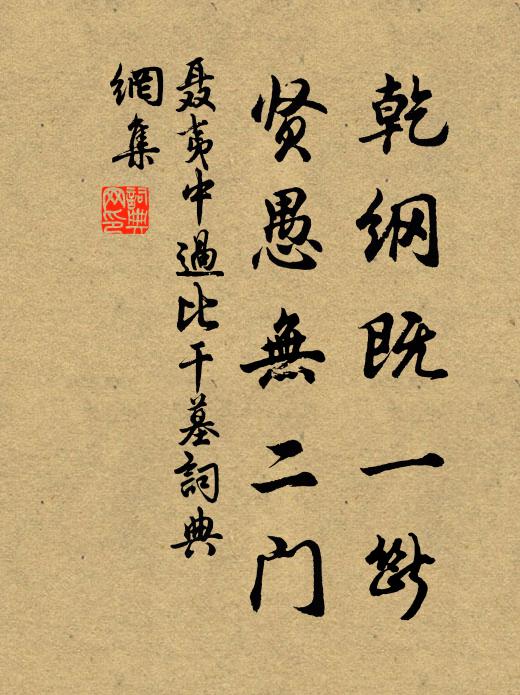 乾纲既一断
贤愚無二门
聂夷中過比干墓詞典
網集
詞典
网印